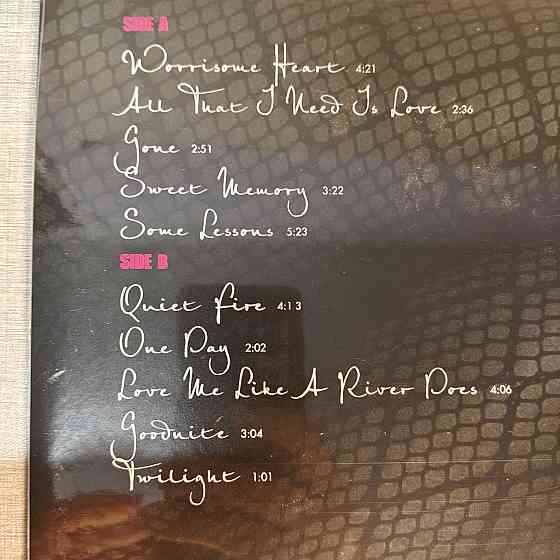 SIDE A
Worrisome Heart 4:21
All That I Need Is Love 2:36
Gone 2:51
Sweet Memory 3:22
Some Lessons 5:23
SIDE B
Quiet Fire 4:13
One Day 2:02
Love Me Like A River Does 4:06
Goodnite 3:04
Twilight 1:01